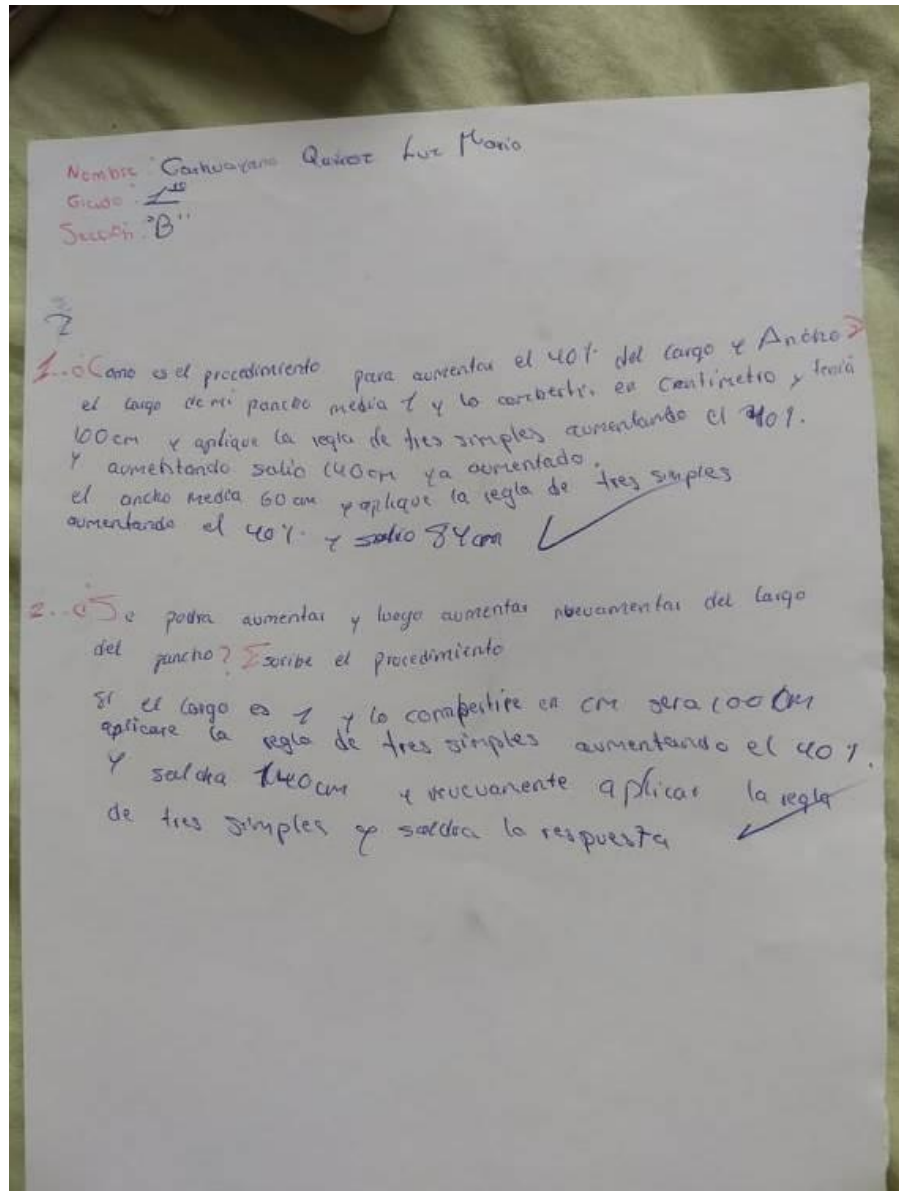 Nombre: Carhuayano Quiroz Luz Maria
Grado: 1ro
Sección: "B"
1..¿Como es el procedimiento para aumentar el 40% del largo y Ancho?
el largo de mi poncho media 1 y lo convertir. en Centimetro y tenia
100cm y aplique la regla de tres simples aumentando el 40%.
Y aumentando salio 140cm ya aumentado.
el ancho media 60 cm y aplique la regla de tres simples
aumentando el 40% y salio 84cm
2..¿Se podra aumentar y luego aumentar nuevamentar del largo
del puncho? Escribe el procedimiento
si el largo es 1 y lo combertire en cm sera 100 cm
aplicare la regla de tres simples aumentando el 40%.
Y saldra 140cm y nuevamente aplicar la regla
de tres simples y saldra la respuesta